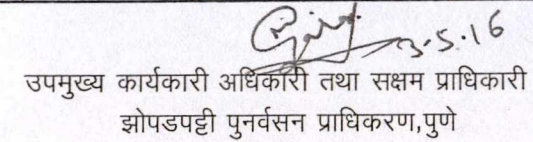 3-5-16
उपमुख्य कार्यकारी अधिकारी तथा सक्षम प्राधिकारी
झोपडपट्टी पुनर्वसन प्राधिकरण,पुणे